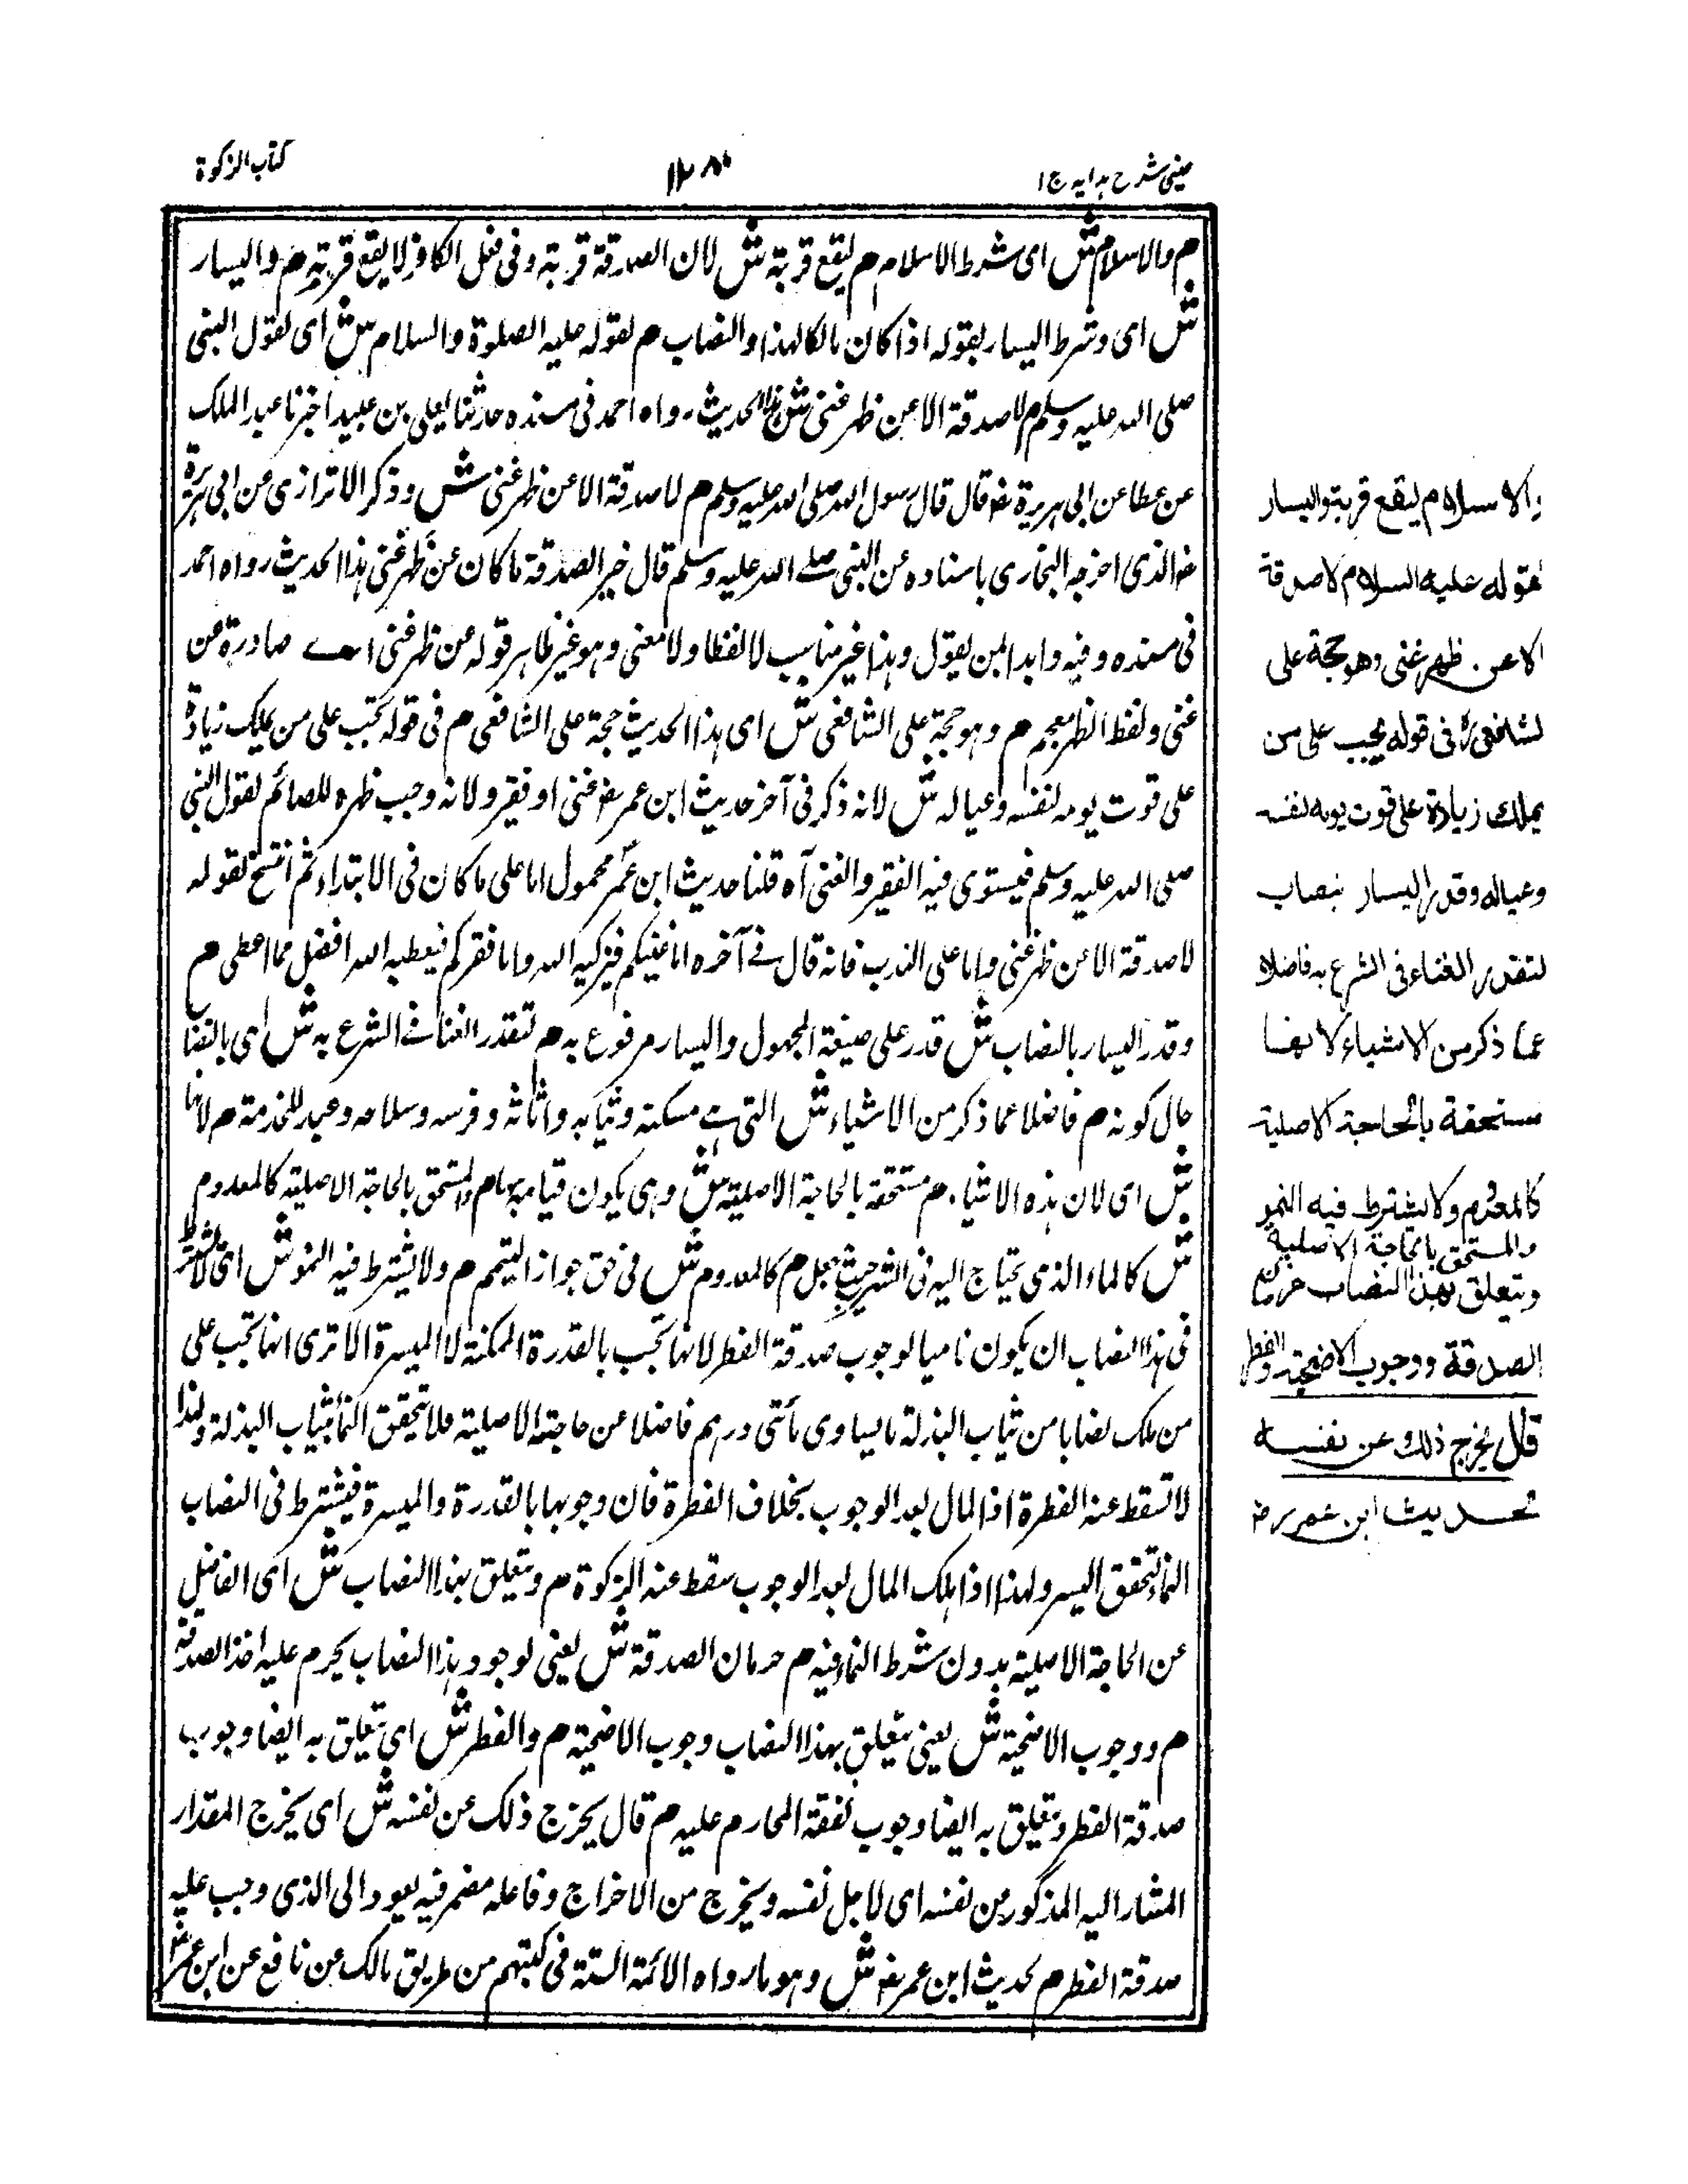 عینی شرح ہدایہ ج ۱
۱۲۸۰
کتاب الزکوة
م والاسلام ش ای شرط الاسلام م لیقع قربة ش لان الصدقة قربة وفی فعل الکافر لا یقع قربة م والیسار
ش ای وشرط الیسار بقوله اذا کان مالکا لهذا والنصاب م لقوله علیه الصلوة والسلام ش ای لقول النبی
صلی الله علیه وسلم م لا صدقة الا عن ظهر غنی ش هذا الحدیث رواه احمد فی مسنده حدثنا یعلی بن عبید اخبرنا عبد الملک
عن عطا عن ابی هریرة رضی قال قال رسول الله صلی الله علیه وسلم م لا صدقة الا عن ظهر غنی ش وذکر الاترازی عن ابی هریرة
رضی الذی اخرجه البخاری باسناده عن النبی صلے الله علیه وسلم قال خیر الصدقة ما کان عن ظهر غنی هذا الحدیث رواه احمد
فی مسنده وفیه وابدا بمن یعول وهذا غیر مناسب لا لفظا ولا معنی وهو غیر ظاهر قوله عن ظهر غنی اے صادرة عن
غنی ولفظ الظهر مقحم م وهو حجة علی الشافعی ش ای هذا الحدیث حجة علی الشافعی م فی قوله تجب علی من یملک زیادة
علی قوت یومه لنفسه وعیاله ش لانه ذکر فی آخر حدیث ابن عمر رضی غنی او فقیر ولانه وجب طهره للصائم لقول النبی
صلی الله علیه وسلم فیستوی فیه الفقیر والغنی آه قلنا حدیث ابن عمر محمول اما علی ما کان فی الابتداء ثم انتسخ لقوله
لا صدقة الا عن ظهر غنی واما علی الندب فانه قال فے آخره اما غنیکم فیزکیه الله واما فقیرکم فیعطیه الله افضل مما اعطی م
وقدر الیسار بالنصاب ش قدر علی صیغة المجهول والیسار مرفوع به م لتقدر الغنا فے الشرع به ش ای بالنصاب
حال کونه م فاضلا عما ذکر من الاشیاء ش التی ہے مسکنه وثیابه واثاثه وفرسه وسلاحه وعبد للخدمة م لانها
ش ای لان هذه الاشیاء م مستحقة بالحاجة الاصلیة ش وہی یکون قیامه بها م والمستحق بالحاجة الاصلیة کالمعدوم
ش کالماء الذی یحتاج الیه فی الشرب حیث جعل م کالمعدوم ش فی حق جواز التیمم م ولا یشترط فیه النمو ش ای لا یشترط
فی هذا النصاب ان یکون نامیا لوجوب صدقة الفطر لانها تجب بالقدرة الممکنة لا المیسرة الا تری انها تجب علی
من ملک نصابا من ثیاب البذلة ما یساوی مأتی درهم فاضلا عن حاجته الاصلیة فلا تحقق النماء بثیاب البذلة ولهذا
لا تسقط عنه الفطرة اذ المال بعد الوجوب بخلاف الفطرة فان وجوبها بالقدرة والمیسرة فیشترط فی النصاب
النماء لتحقق الیسر ولهذا اذا هلک المال بعد الوجوب سقط عنه الزکوة م ویتعلق بهذا النصاب ش ای الفاضل
عن الحاجة الاصلیة بدون شرط النماء فیه م حرمان الصدقة ش یعنی لوجود هذا النصاب یحرم علیه اخذ الصدقة
م ووجوب الاضحیة ش یعنی یتعلق بهذا النصاب وجوب الاضحیة م والفطر ش ای یتعلق به ایضا وجوب
صدقة الفطر ویتعلق به ایضا وجوب نفقة المحارم علیه م قال یخرج ذلک عن نفسه ش ای یخرج المقدار
المشار الیه المذکور من نفسه ای لاجل نفسه ویخرج من الاخراج وفاعله مضمر فیه یعود الی الذی وجب علیه
صدقة الفطر م لحدیث ابن عمر رضی ش وهو ما رواه الائمة الستة فی کتبهم من طریق مالک عن نافع عن ابن عمر
والاسلام لیقع قربة والیسار
لقوله علیه السلام لا صدقة
الا عن ظهر غنی وهو حجة علی
الشافعی رح فی قوله یجب علی من
یملک زیادة علی قوت یومه لنفسه
وعیاله وقدر الیسار بنصاب
لتقدر الغناء فی الشرع به فاضلا
عما ذکر من الاشیاء لانها
مستحقة بالحاجة الاصلیة
والمستحق بالحاجة الاصلیة
کالمعدوم ولا یشترط فیه النمو
ویتعلق بهذا النصاب حرمان
الصدقة ووجوب الاضحیة والفطر
قال یخرج ذلک عن نفسه
لحدیث ابن عمر رض